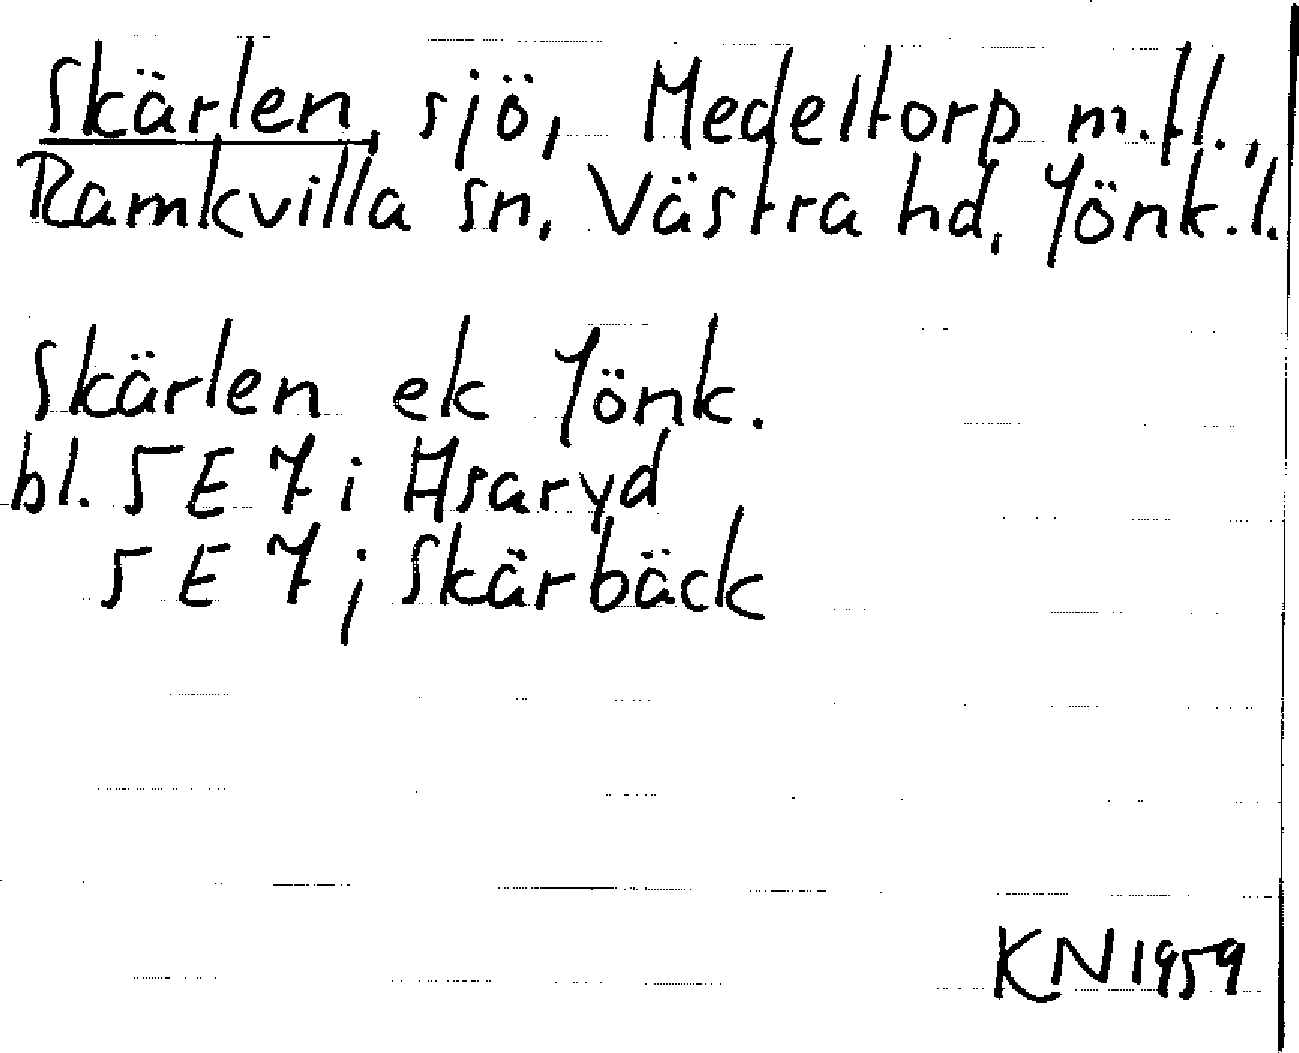 Skärlen, sjö, Medeltorp m.fl.,
Ramkvilla sn, Västra hd, Jönk.l.
Skärlen ek Jönk.
bl. 5 E 7 i Asaryd
5 E 7 j Skärbäck
KN 1959